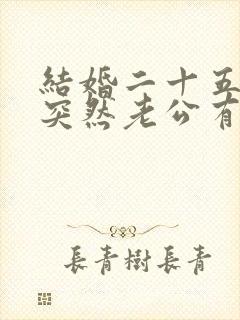 結婚二十五
突然老公有
長青樹長青